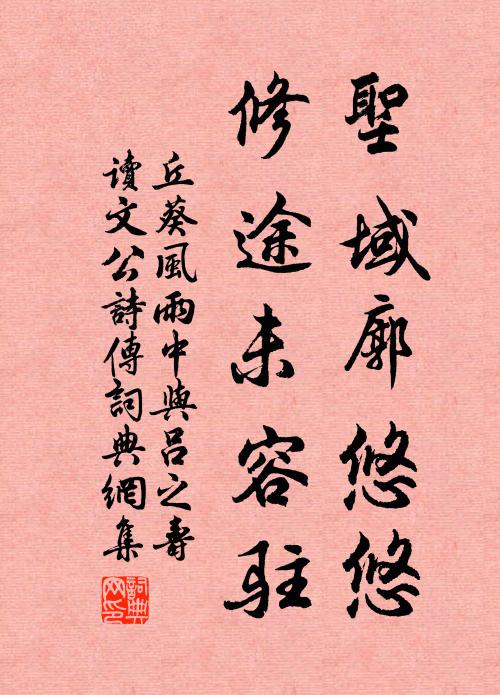 聖域廓悠悠
修途未容駐
丘葵風雨中與呂之壽
讀文公詩傳詞典網集
詞典網印